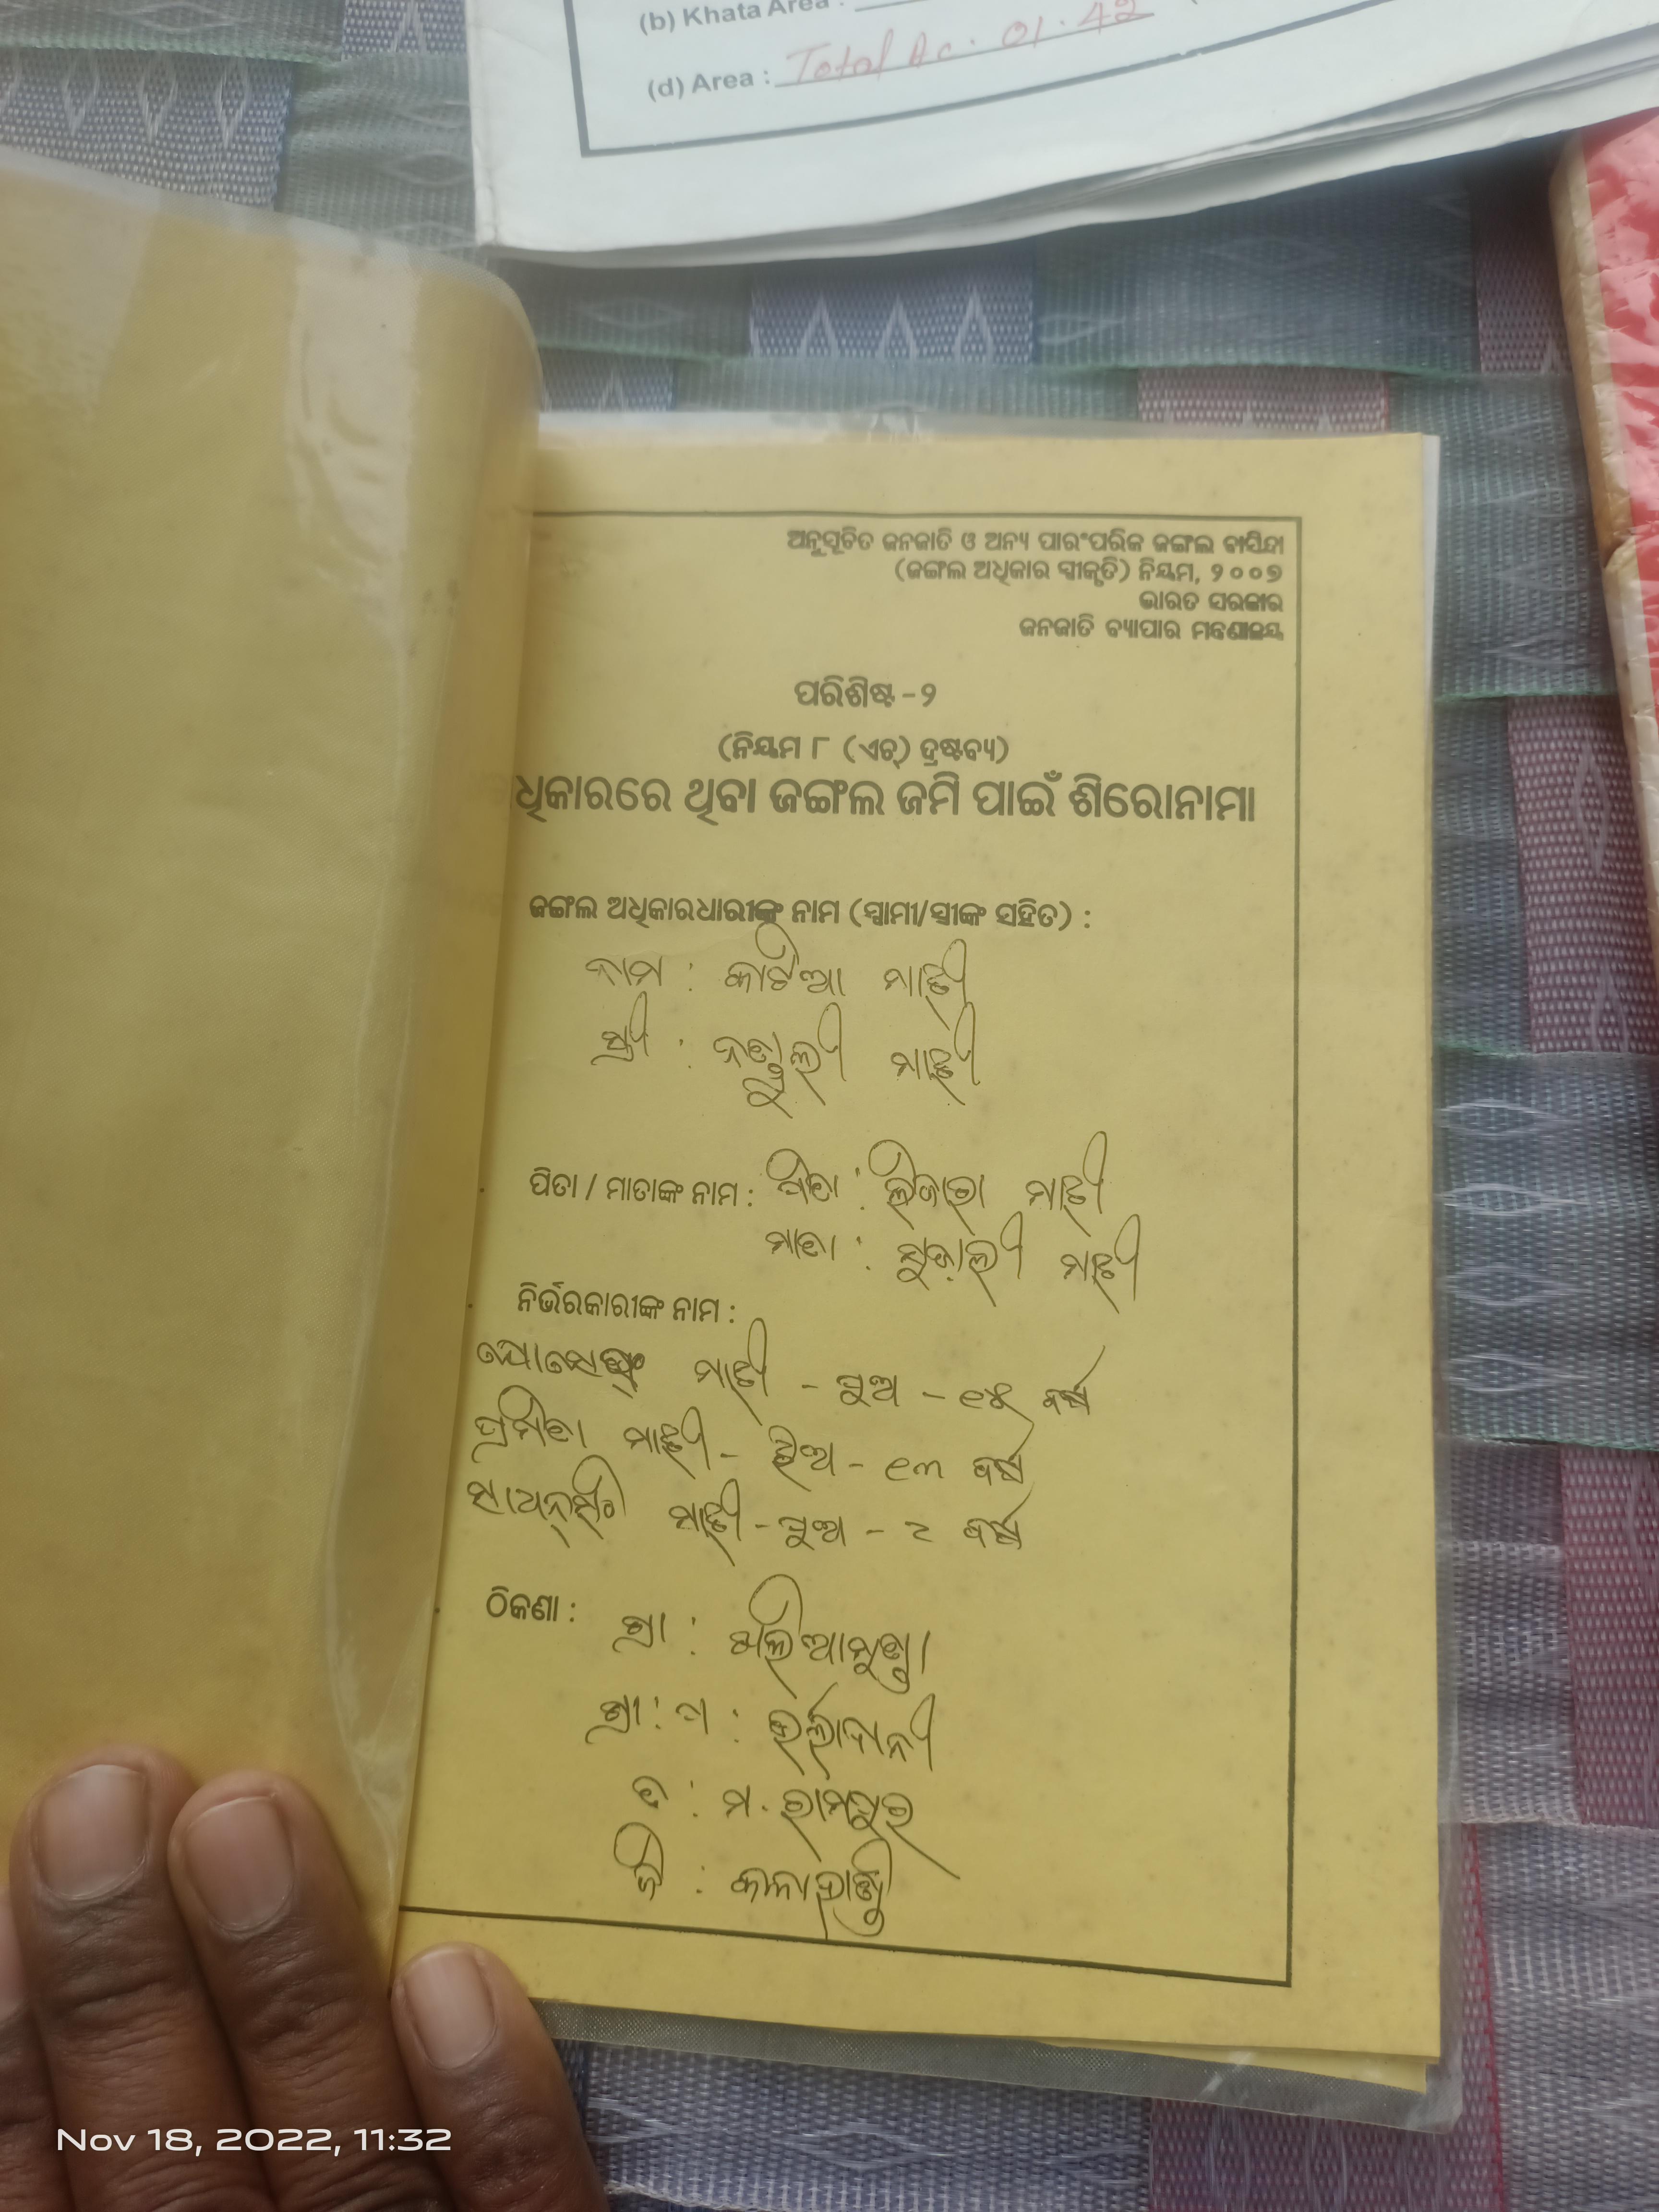 (b) Khata Area :
(d) Area : Total Ac. 01.42
ଅନୁସୂଚିତ ଜନଜାତି ଓ ଅନ୍ୟ ପାରଂପରିକ ଜଙ୍ଗଲ ବାସିନ୍ଦା
(ଜଙ୍ଗଲ ଅଧିକାର ସ୍ୱୀକୃତି) ନିୟମ, ୨୦୦୭
ଭାରତ ସରକାର
ଜନଜାତି ବ୍ୟାପାର ମନ୍ତ୍ରଣାଳୟ
ପରିଶିଷ୍ଟ - ୨
(ନିୟମ ୮ (ଏଚ୍) ଦ୍ରଷ୍ଟବ୍ୟ)
ଧିକାରରେ ଥିବା ଜଙ୍ଗଲ ଜମି ପାଇଁ ଶିରୋନାମା
ଜଙ୍ଗଲ ଅଧିକାରଧାରୀଙ୍କ ନାମ (ସ୍ୱାମୀ/ସ୍ତ୍ରୀଙ୍କ ସହିତ) :
ନାମ : କାଟିଆ ମାଝୀ
ସ୍ତ୍ରୀ : ମାଝୀ
ପିତା / ମାତାଙ୍କ ନାମ : ପିତା : ମାଝୀ
ମାତା : ମାଝୀ
ନିର୍ଭରକାରୀଙ୍କ ନାମ :
ମାଝୀ - ପୁଅ - ୧୫ ବର୍ଷ
ପ୍ରମିଳା ମାଝୀ - ଝିଅ - ୧୩ ବର୍ଷ
ମାଝୀ - ପୁଅ - ୮ ବର୍ଷ
ଠିକଣା :
ଗ୍ରା : ଖଲିଆମୁଣ୍ଡା
ଗ୍ରା : ପ :
ବ : ମ. ରାମପୁର
ଜି : କଳାହାଣ୍ଡି
Nov 18, 2022, 11:32